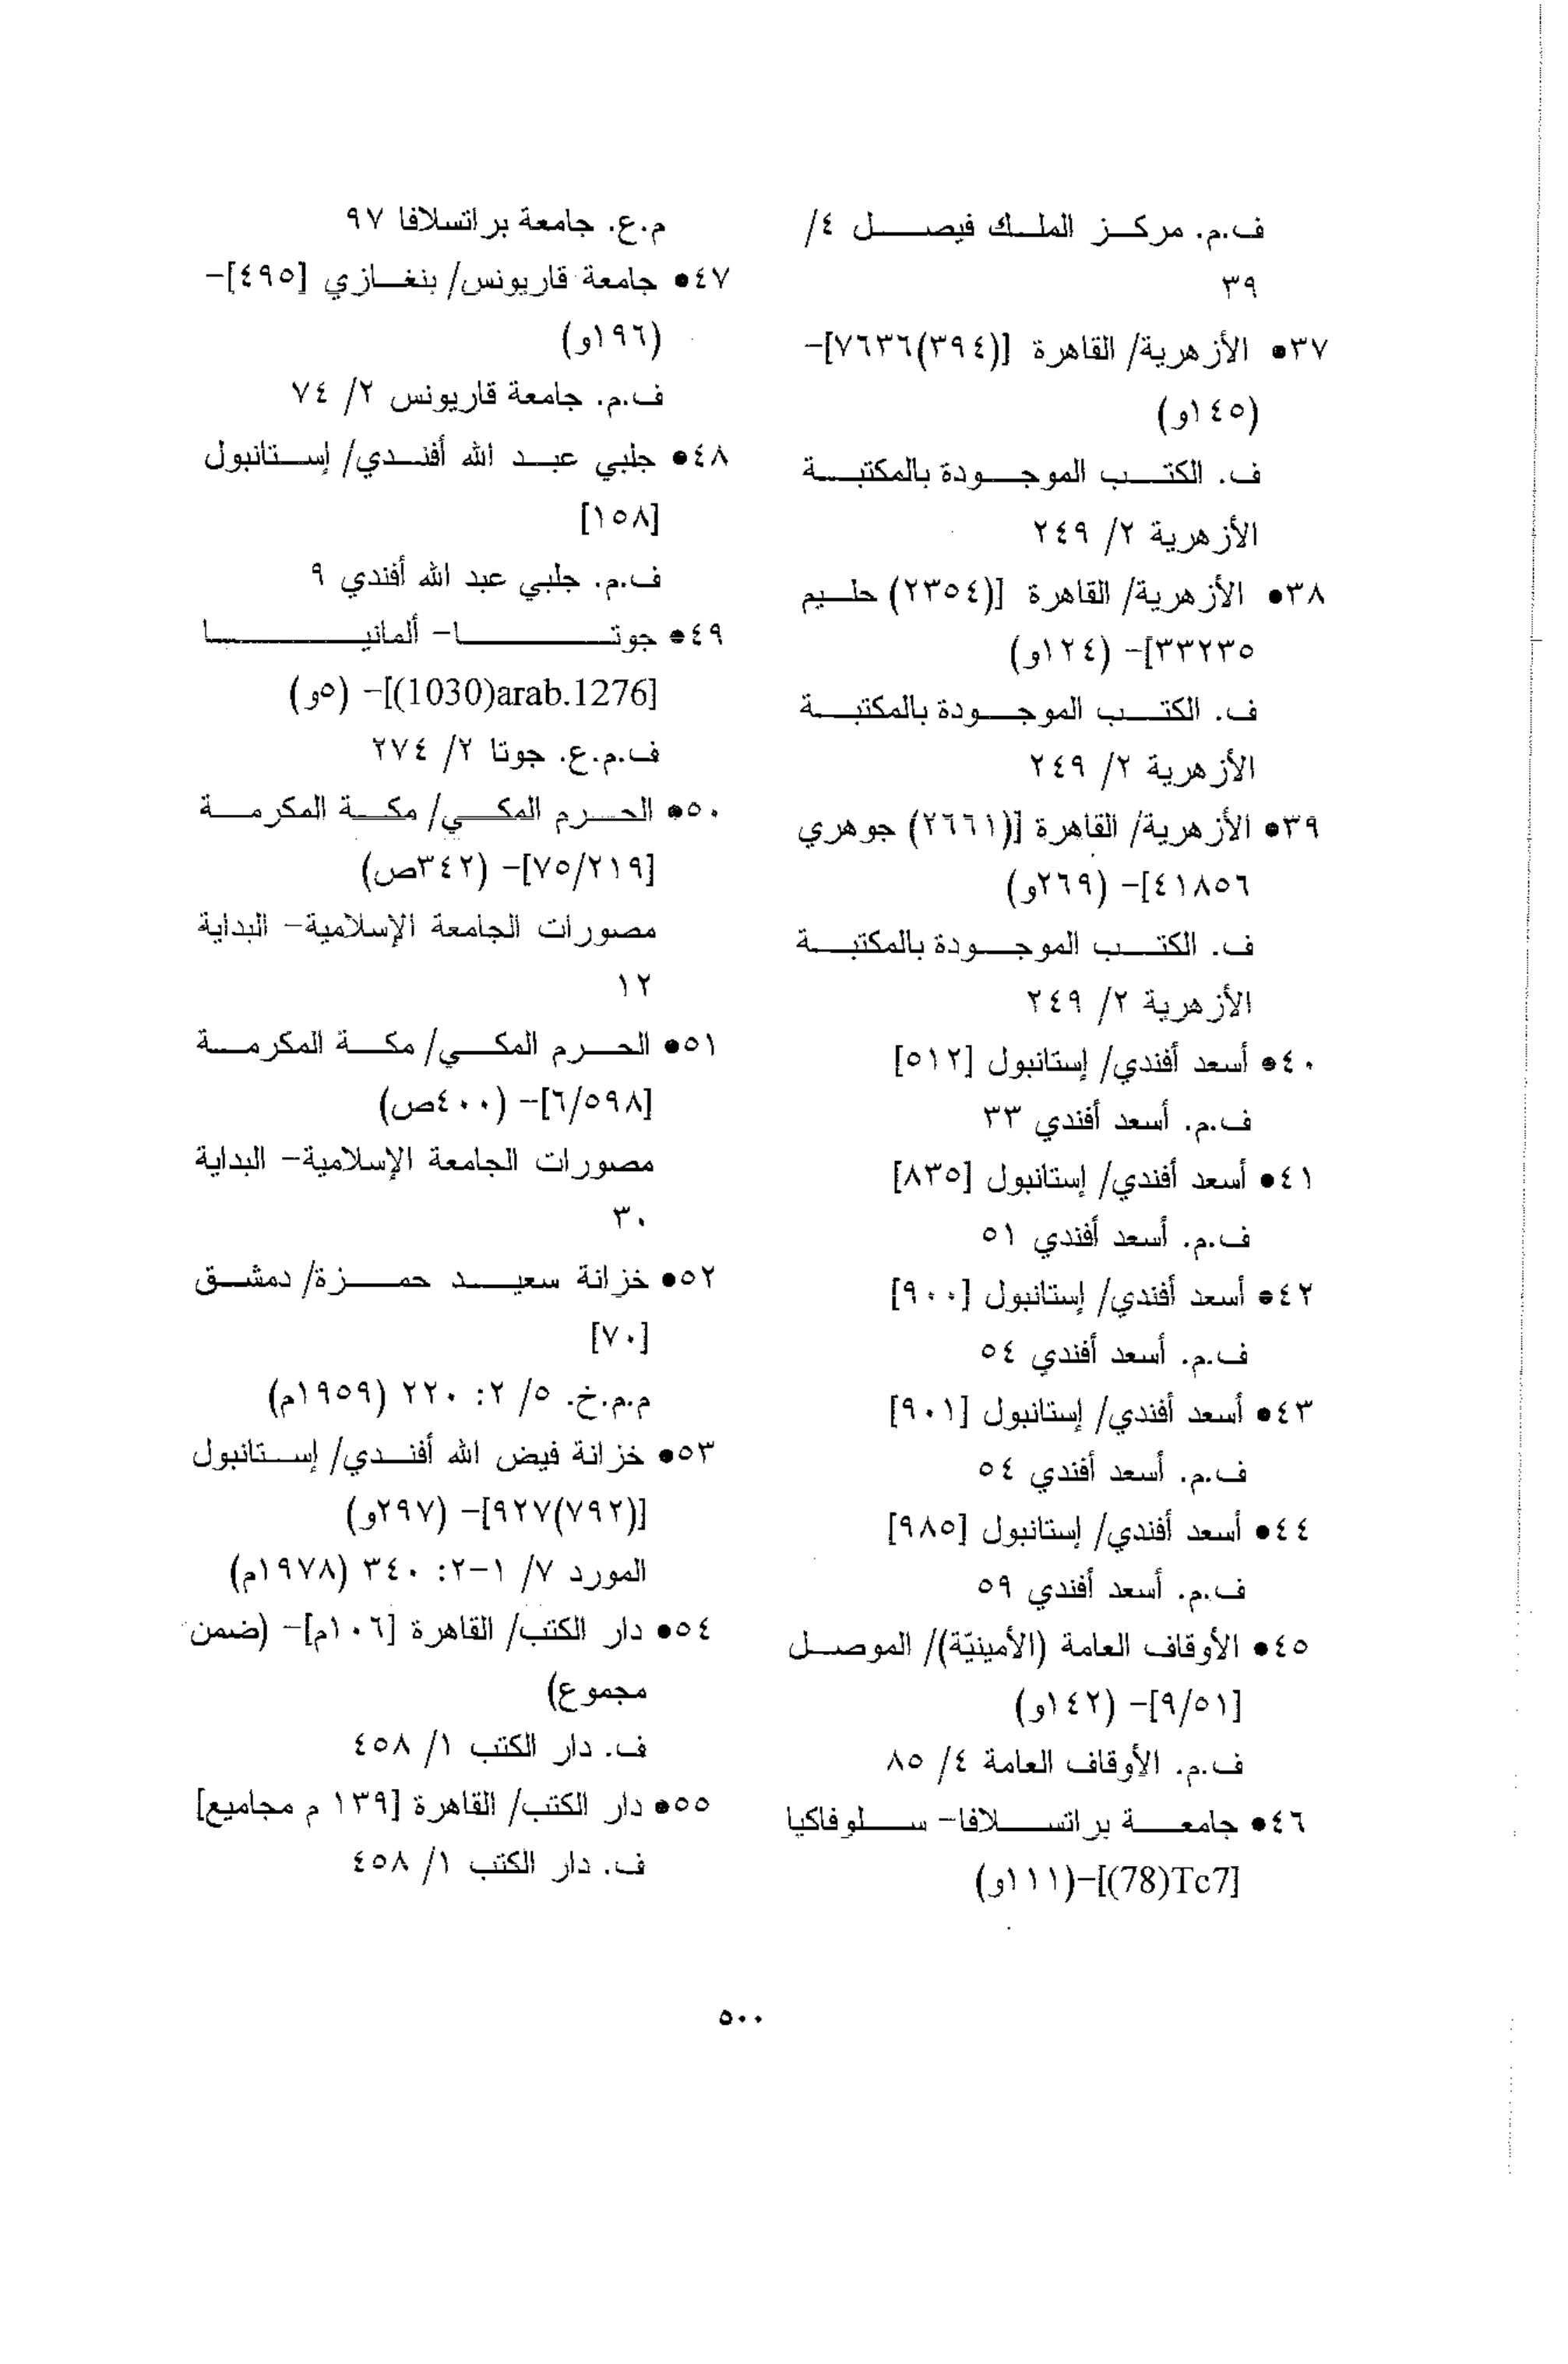 ف.م. مركز الملك فيصل ٤/
٣٩
٣٧• الأزهرية/ القاهرة [(٣٩٤)٧٦٣٦]-
(١٤٥و)
ف. الكتب الموجودة بالمكتبة
الأزهرية ٢/ ٢٤٩
٣٨• الأزهرية/ القاهرة [(٢٣٥٤) حليم
٣٣٢٣٥]- (١٢٤و)
ف. الكتب الموجودة بالمكتبة
الأزهرية ٢/ ٢٤٩
٣٩• الأزهرية/ القاهرة [(٢٦٦١) جوهري
٤١٨٥٦]- (٢٦٩و)
ف. الكتب الموجودة بالمكتبة
الأزهرية ٢/ ٢٤٩
٤٠• أسعد أفندي/ إستانبول [٥١٢]
ف.م. أسعد أفندي ٣٣
٤١• أسعد أفندي/ إستانبول [٨٣٥]
ف.م. أسعد أفندي ٥١
٤٢• أسعد أفندي/ إستانبول [٩٠٠]
ف.م. أسعد أفندي ٥٤
٤٣• أسعد أفندي/ إستانبول [٩٠١]
ف.م. أسعد أفندي ٥٤
٤٤• أسعد أفندي/ إستانبول [٩٨٥]
ف.م. أسعد أفندي ٥٩
٤٥• الأوقاف العامة (الأمينيّة)/ الموصل
[٩/٥١]- (١٤٢و)
ف.م. الأوقاف العامة ٤/ ٨٥
٤٦• جامعة براتسلافا- سلوفاكيا
[(78)Tc7]-(١١١و)
م.ع. جامعة براتسلافا ٩٧
٤٧• جامعة قاريونس/ بنغازي [٤٩٥]-
(١٩٦و)
ف.م. جامعة قاريونس ٢/ ٧٤
٤٨• جلبي عبد الله أفندي/ إستانبول
[١٥٨]
ف.م. جلبي عبد الله أفندي ٩
٤٩• جوتا- ألمانيا
[(1030)arab.1276]- (٥و)
ف.م.ع. جوتا ٢/ ٢٧٤
٥٠• الحرم المكي/ مكة المكرمة
[٧٥/٢١٩]- (٣٤٢ص)
مصورات الجامعة الإسلامية- البداية
١٢
٥١• الحرم المكي/ مكة المكرمة
[٦/٥٩٨]- (٤٠٠ص)
مصورات الجامعة الإسلامية- البداية
٣٠
٥٢• خزانة سعيد حمزة/ دمشق
[٧٠]
م.م.خ. ٥/ ٢: ٢٢٠ (١٩٥٩م)
٥٣• خزانة فيض الله أفندي/ إستانبول
[(٧٩٢)٩٢٧]- (٢٩٧و)
المورد ٧/ ١-٢: ٣٤٠ (١٩٧٨م)
٥٤• دار الكتب/ القاهرة [١٠٦م]- (ضمن
مجموع)
ف. دار الكتب ١/ ٤٥٨
٥٥• دار الكتب/ القاهرة [١٣٩ م مجاميع]
ف. دار الكتب ١/ ٤٥٨
٥٠٠